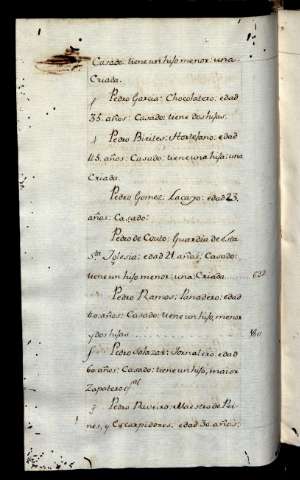 Casado: tiene un hijo menor: una
Criada.
Pedro Garcia: Chocolatero: edad
35. años: Casado: tiene dos hijas.
Pedro Birites: Hortelano: edad
45. años: Casado: tiene una hija: una
Criada.
Pedro Gomez: Lacayo: edad 23.
años: Casado:
Pedro de Couto: Guardia de esta
Sta Iglesia: edad 21 años; Casado:
tiene un hijo menor: una Criada
Pedro Ramos: Panadero: edad
60 años: Casado: tiene un hijo, menor
y dos hijas
Pedro Salazar: Jornalero: edad
60 años: Casado: tiene un hijo, maior
Zapatero
Pedro Maestro de Pei-
nes, y Escarpidores: edad 30 años: